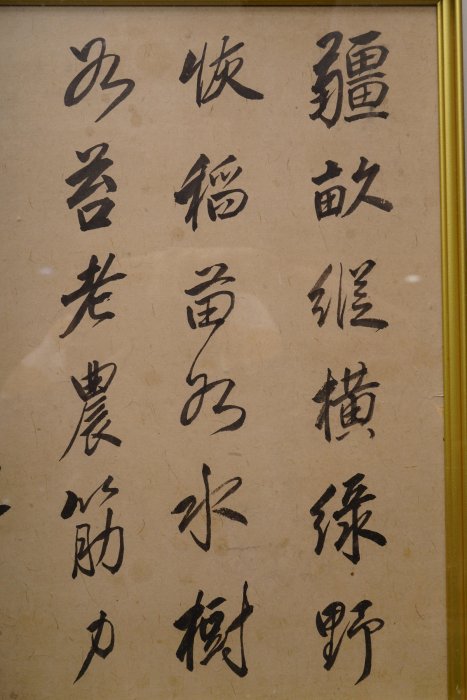 疆畝縱橫綠野
恢稻苗如水樹
如苔老農筋力